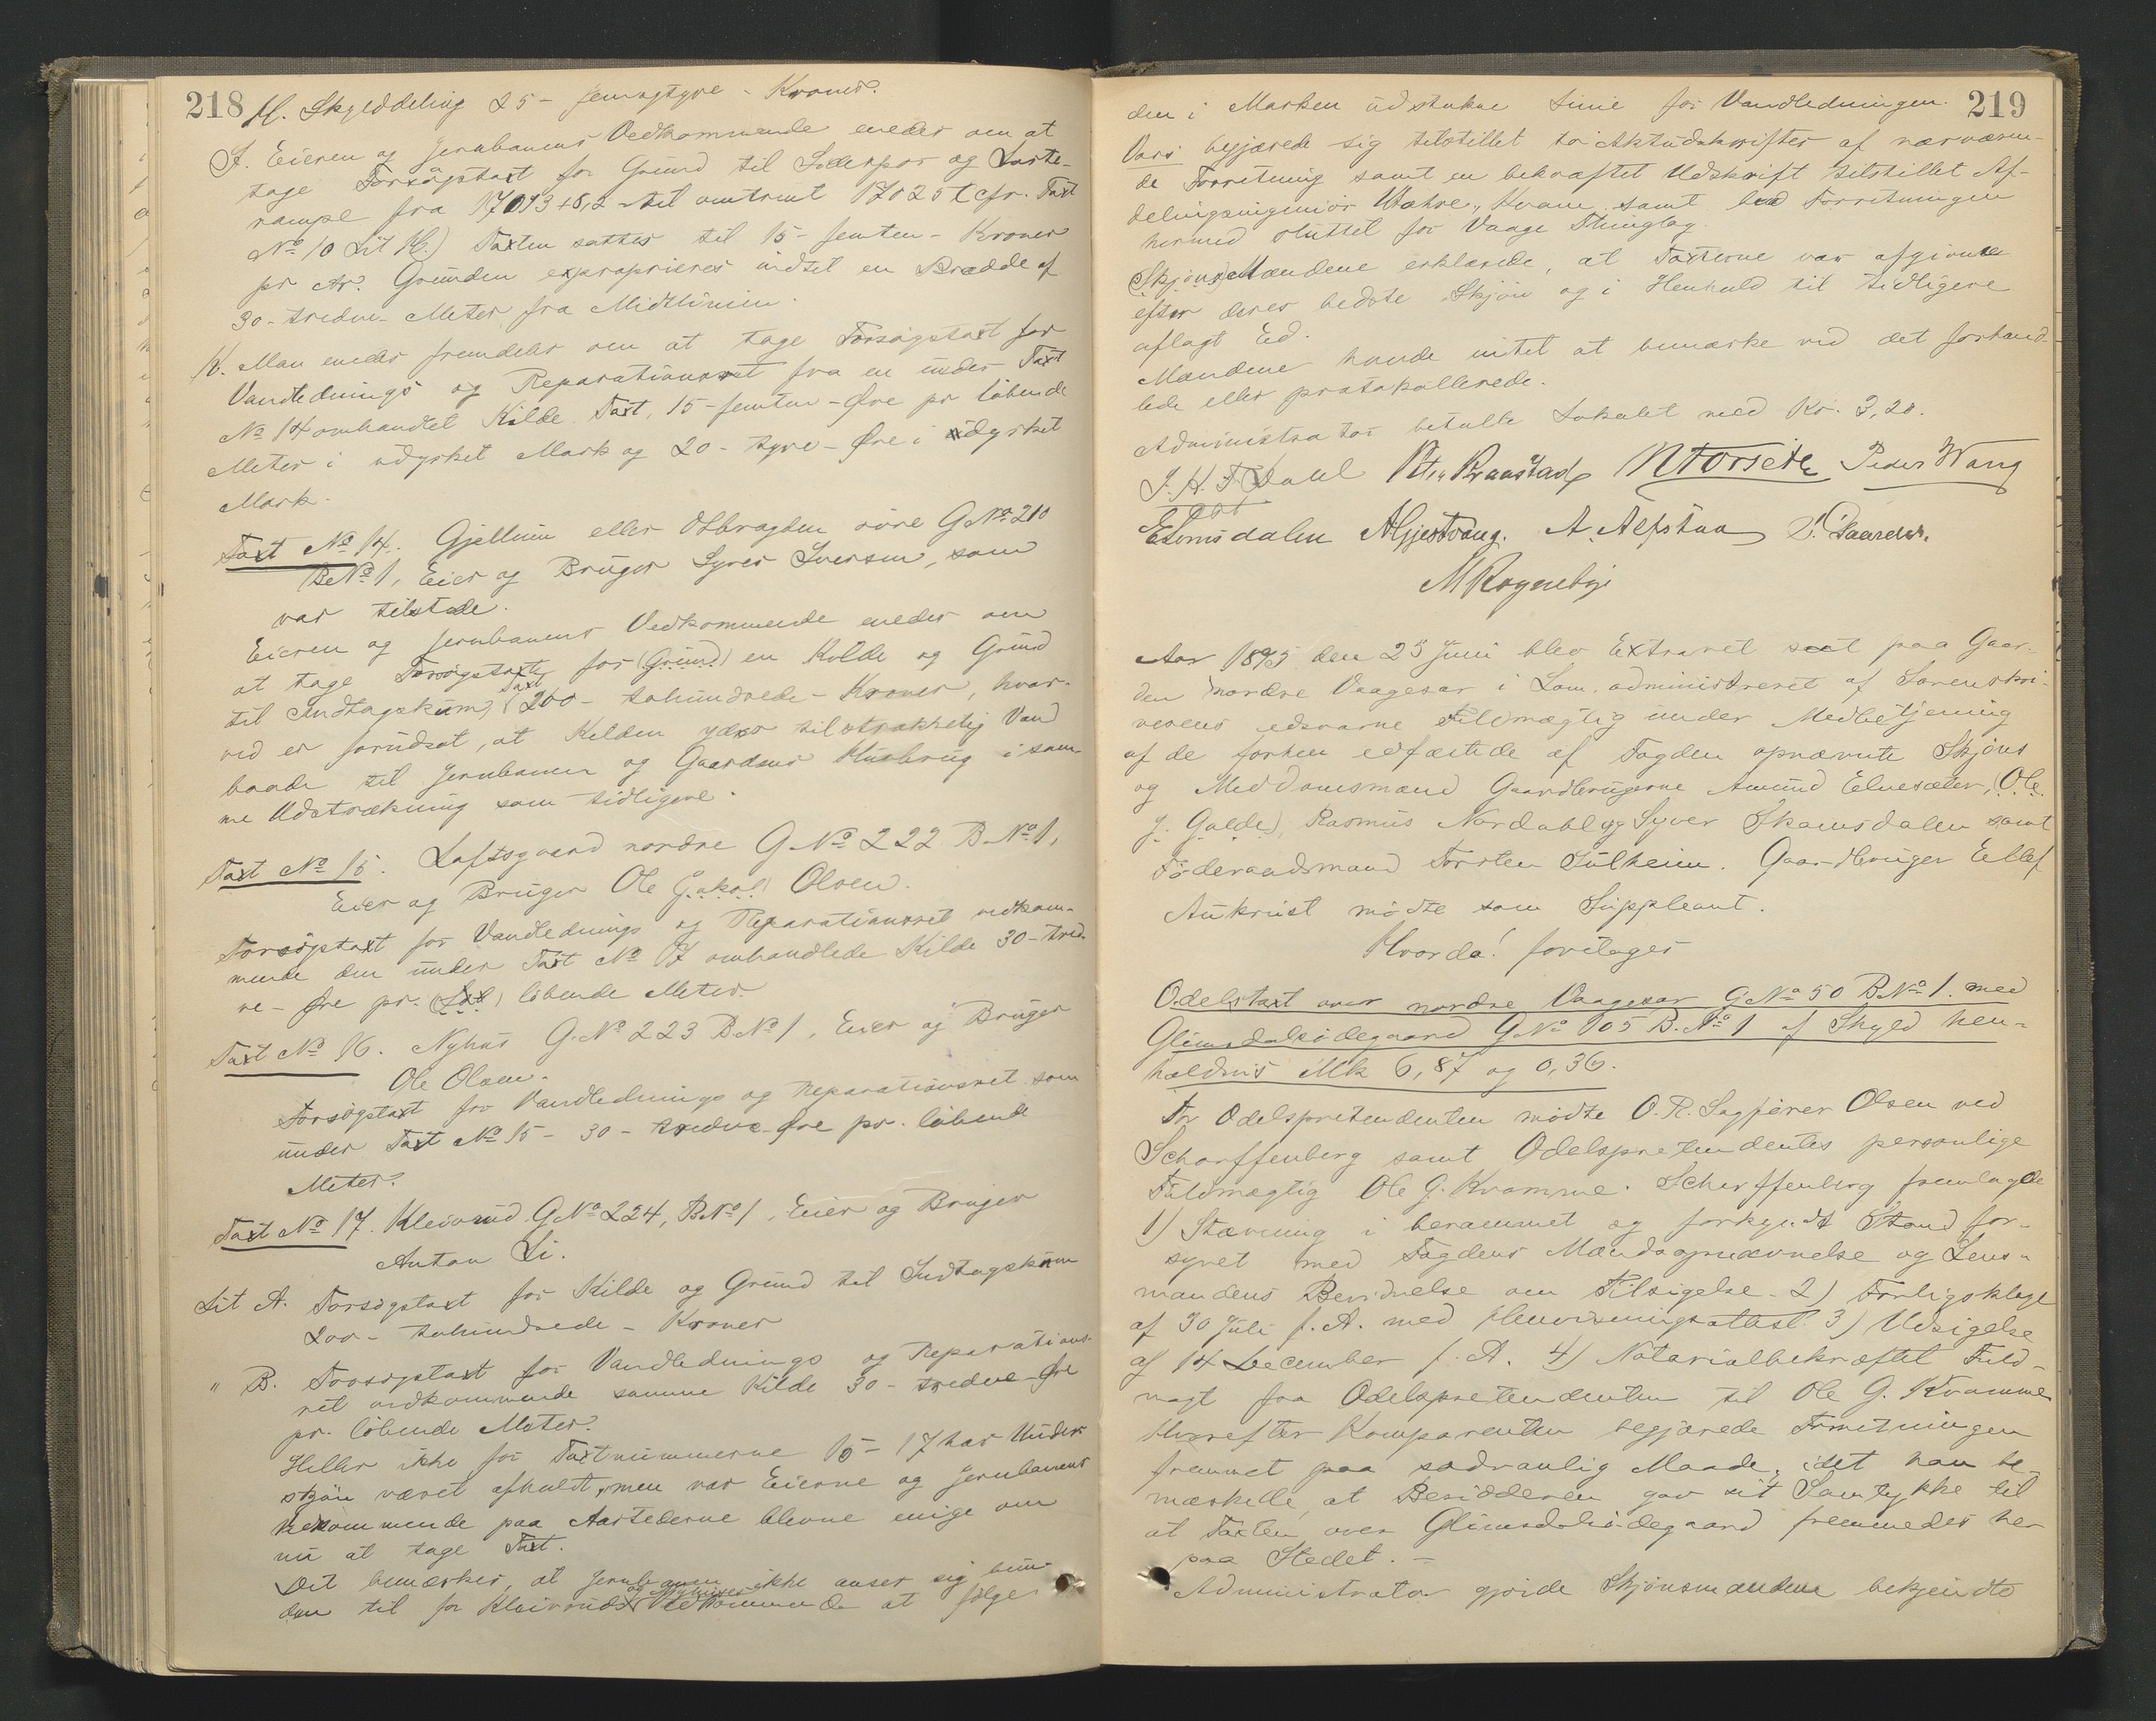 218
H. Skylddeling 25 - femogtyve - Kroner.
I. Eieren og Jernbanens Vedkommende enedes om at
tage Forsøgstaxt for Grund til Sidespor og Laste-
rampe fra 17013 + 8,2 til omtrent 17025 (cfr. Taxt
No 10 Lit H.) Taxten sattes til 15 - femten - Kroner
pr Ar. Grunden exproprieres indtil en Bredde af
30 - tredve - Meter fra Midtlinien.
K. Man enedes fremdeles om at tage Forsøgstaxt for
Vandlednings og Reparationsret fra en under Taxt
No 14 omhandlet Kilde. Taxt, 15 - femten - Øre pr løbende
Meter i udyrket Mark og 20 - tyve - Øre i dyrket
Mark.
Taxt No 14. Gjellum eller Olbragden øvre G.No 210
B.No 1, Eier og Bruger Syver Iversen, som
var tilstede.
Eieren og Jernbanens Vedkommende enedes om
at tage Forsøgstaxt for (Grund) en Kilde og Grund
til Indtagskum, Taxt 200 - tohundrede - Kroner, hvor-
ved er forudsat, at Kilden yder tilstrækkelig Vand
baade til Jernbanen og Gaardens Husbrug i sam-
me Udstrækning som tidligere.
Taxt No 15. Loftsgaard nordre G.No 222 B.No 1,
Eier og Bruger Ole (Jakob) Olsen.
Forsøgstaxt for Vandlednings og Reparationsret vedkom-
mende den under Taxt No 17 omhandlede Kilde 30 - tred-
ve - Øre pr. løbende Meter.
Taxt No 16. Nyhus G.No 223 B.No 1, Eier og Bruger
Ole Olsen.
Forsøgstaxt for Vandlednings og Reparationsret som
under Taxt No 15 - 30 - tredve Øre pr. løbende
Meter.
Taxt No 17. Kleivrud G.No 224, B.No 1, Eier og Bruger
Anton Li.
Lit A. Forsøgstaxt for Kilde og Grund til Indtagskum
200 - tohundrede - Kroner
" B. Forsøgstaxt for Vandlednings og Reparations-
ret vedkommende samme Kilde 30 - tredve Øre
pr. løbende Meter.
Heller ikke for Taxtnummerne 15 - 17 har Under-
skjøn været afholdt, men var Eierne og Jernbanens
Vedkommende paa Aastederne blevne enige om
nu at tage Taxt.
Det bemærkes, at Jernbanen ikke anser sig bun-
den til for Kleivruds og Nyhuses Vedkommende at følge
219
den i Marken udstukne Linie for Vandledningen.
Vors begjærede sig tilstillet to Aktudskrifter af nærværen-
de Forretning samt en bekræftet Udskrift tilstillet Af-
delingsingeniør Wæhre, Kvam, samt lod Forretningen
hermed sluttet for Vaage Thinglag.
(Skjøns) Mændene erklærede, at Taxterne var afgivne
efter deres bedste Skjøn og i Henhold til tidligere
aflagt Ed.
Mændene havde intet at bemærke ved det forhand-
lede eller protokollerede.
Administrator betalte Lokalet med Kr. 3,20.
J. H. F. Dahl Peter Kraastad NTorseth Peder Wang
cst
ELomsdalen AGjestvang. A. Alfstad P. Paarder.
MRognebye
Aar 1895 den 25 Juni blev Extraret sat paa Gaar-
den nordre Vaagesar i Lom, administreret af Sorenskri-
verens edsvorne Fuldmægtig under Medbetjening
af de forhen edfæstede af Fogden opnævnte Skjøns
og Meddomsmænd Gaardbrugerne Amund Elvesæter, (Ole
J. Galde), Rasmus Nordahl og Syver Skamsdalen samt
Føderaadsmand Torsten Sulheim. Gaardbruger Ellef
Aukrust mødte som Suppleant.
Hvorda! foretages
Odelstaxt over nordre Vaagesar G.No 50 B.No 1 med
Glimsdalsødegaard G.No 105 B.No 1 af Skyld hen-
holdsvis Mk 6,87 og 0,36.
For Odelspretendenten mødte O. R. Sagfører Olsen ved
Scharffenberg samt Odelspretendentes personlige
Fuldmægtig Ole G. Kramme. Scharffenberg fremlagde
1) Stævning i berammet og forkyndt Stand for-
synet med Fogdens Mændsopnævnelse og Lens-
mandens Bevidnelse om Tilsigelse. 2) Forligsklage
af 30 Juli f. A. med Henvisningsattest 3) Udsigelse
af 14 December f. A. 4) Notarialbekræftet Fuld-
magt fra Odelspretendenten til Ole G. Kramme
Hvorefter Komparenten begjærede Forretningen
fremmet paa sædvanlig Maade, idet han be-
mærkede, at Besidderen gav sit Samtykke til
at Taxten over Glimsdalsødegaard fremmedes her
paa Stedet. -
Administrator gjorde Skjønsmændene bekjendte